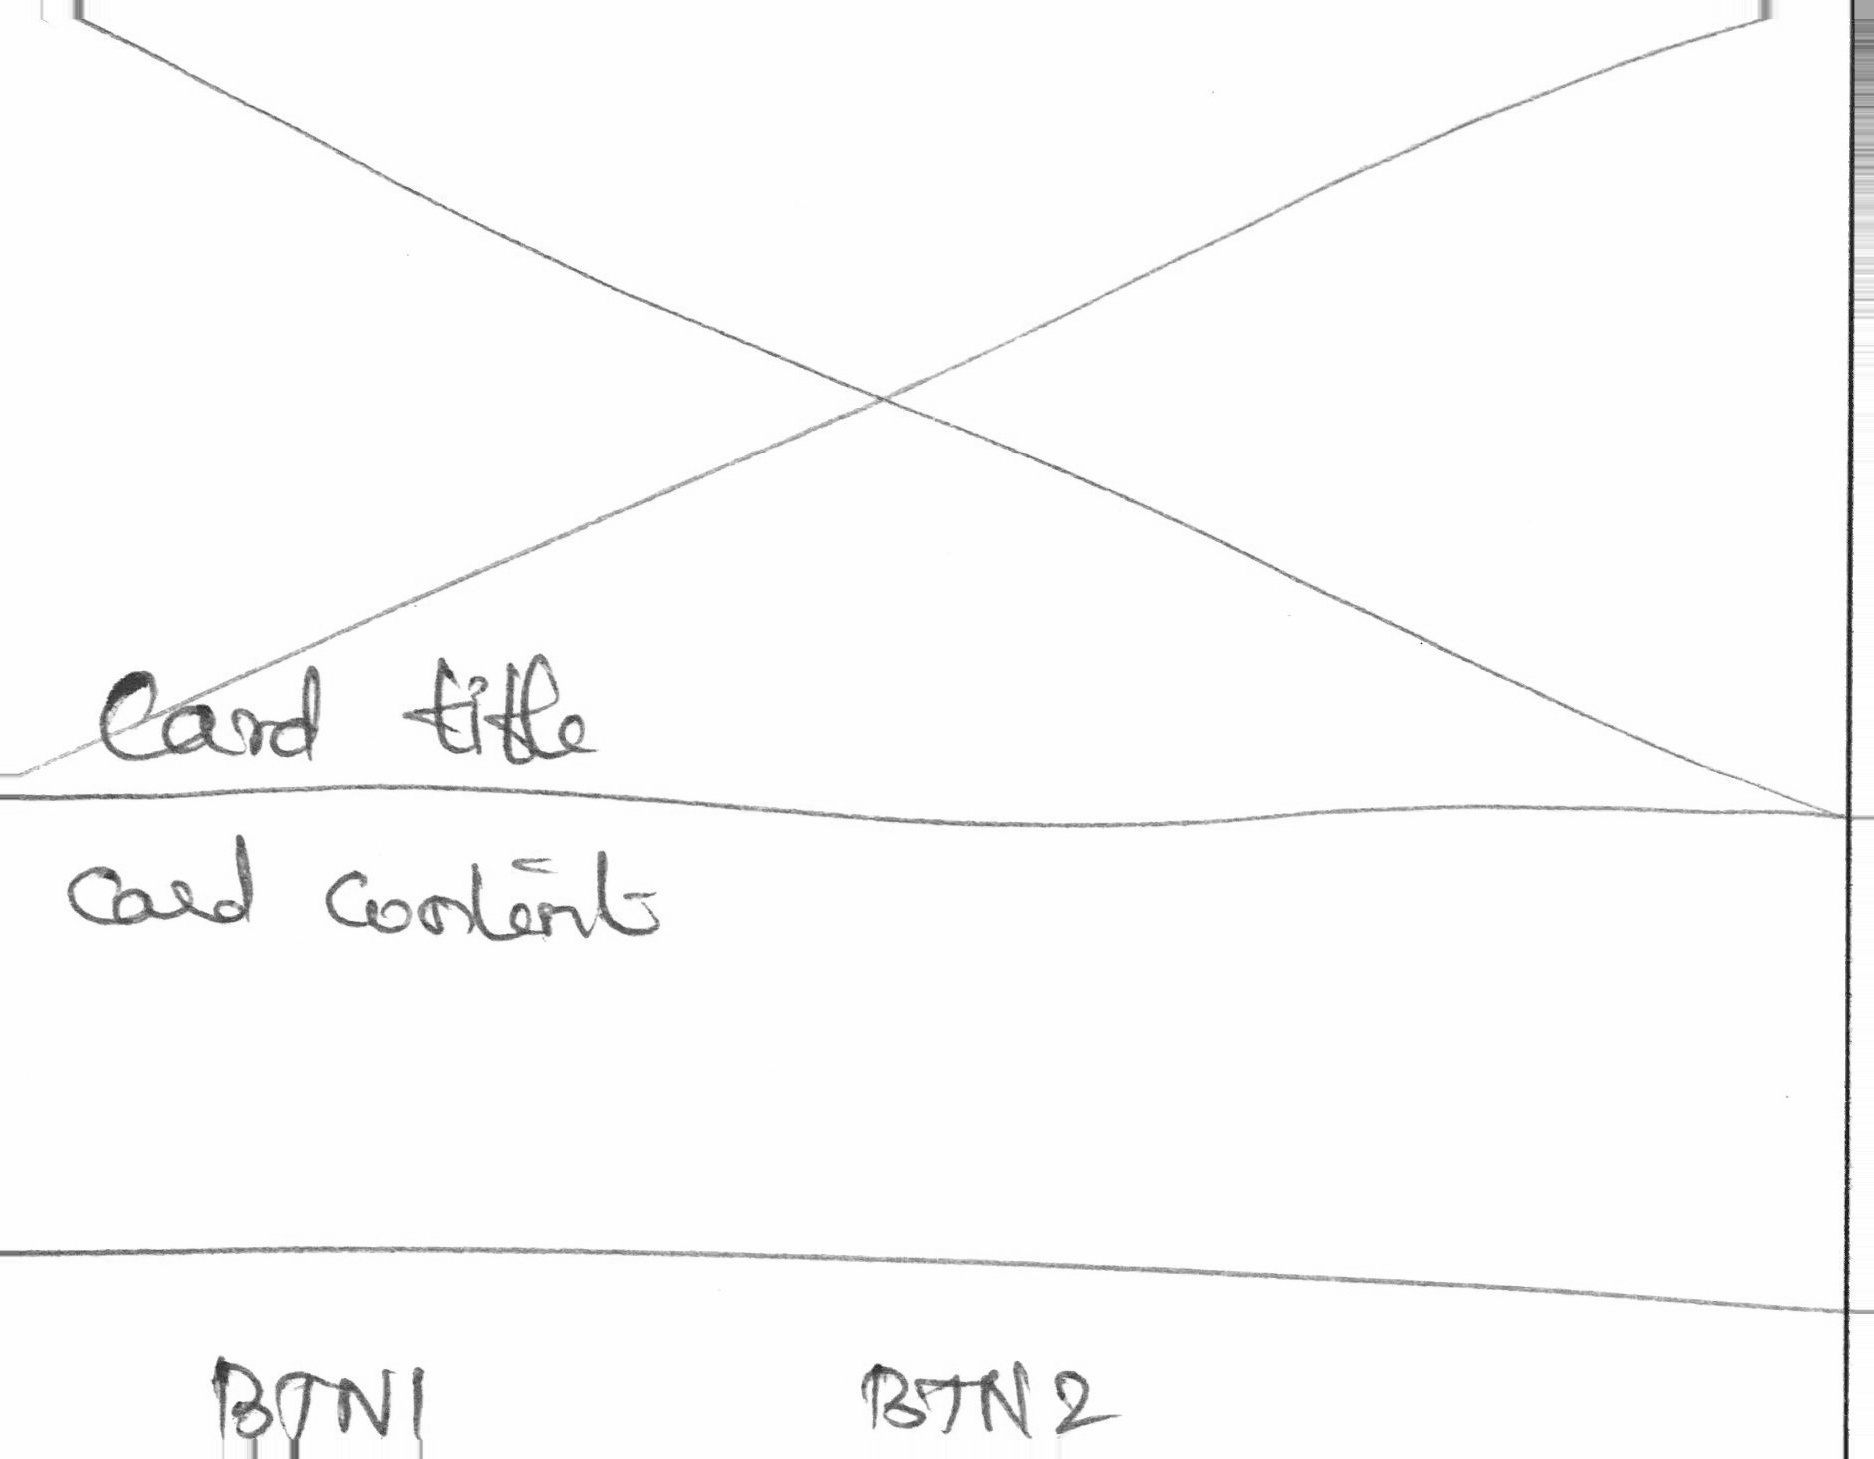 Card title
Card content
BTN1
BTN2